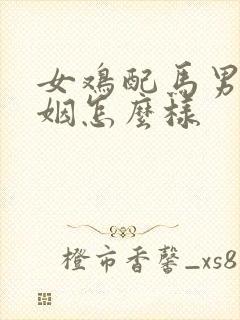 女鸡配马男
姻怎麼样
橙市香馨_xs8